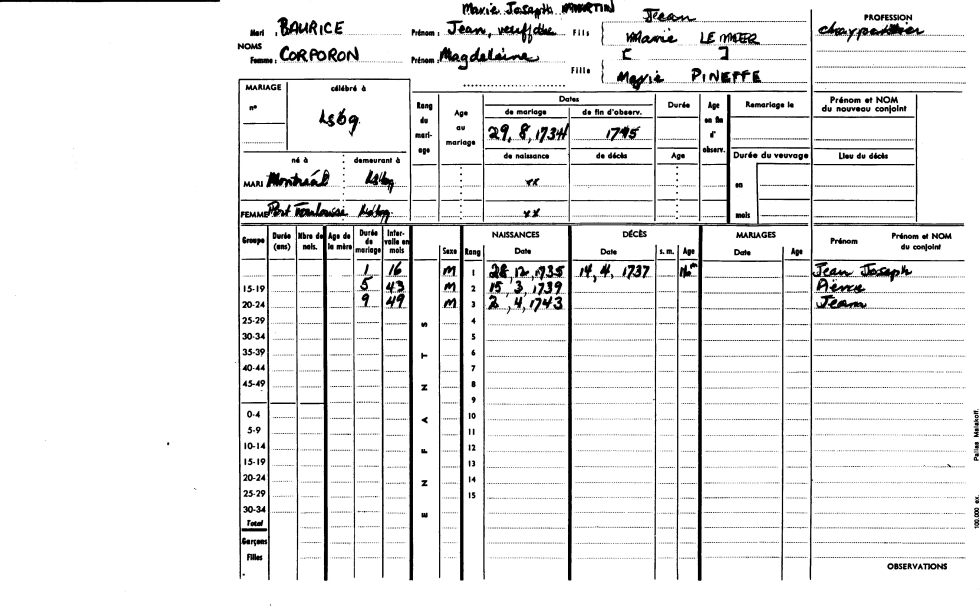 Marie Joseph MARTIN
Mari : BAURICE Prénom : Jean, veuf de Fils Jean PROFESSION
Marie LE charpentier
NOMS
Femme : CORPORON Prénom : Magdeleine Fille [ ]
Marie PINEFFE
MARIAGE célébré à Rang du mariage Age au mariage Dates Durée Age en fin d'observ. Remariage le Prénom et NOM du nouveau conjoint
n° de mariage de fin d'observ.
Lsbg. 29, 8, 1734 1745
né à demeurant à de naissance de décès Age Durée du veuvage Lieu du décès
MARI Montréal Lsbg xx en
FEMME Port Toulouse Lsbg. xx mois
Groupe Durée (ans) Nbre de nais. Age de la mère Durée de mariage Intervalle en mois Sexe Rang NAISSANCES Date DÉCÈS Date s. m. Age MARIAGES Date Age Prénom Prénom et NOM du conjoint
1 16 M 1 28, 12, 1735 14, 4, 1737 16m Jean Joseph
15-19 5 43 M 2 15, 3, 1739 Pierre
20-24 9 49 M 3 2, 4, 1743 Jean
25-29 S 4
30-34 5
35-39 T 6
40-44 7
45-49 N 8
9
0-4 A 10
5-9 11
10-14 F 12
15-19 13
20-24 N 14
25-29 15
30-34 E
Total
Garçons
Filles
OBSERVATIONS
100.000 ex. Pallas Malakoff.